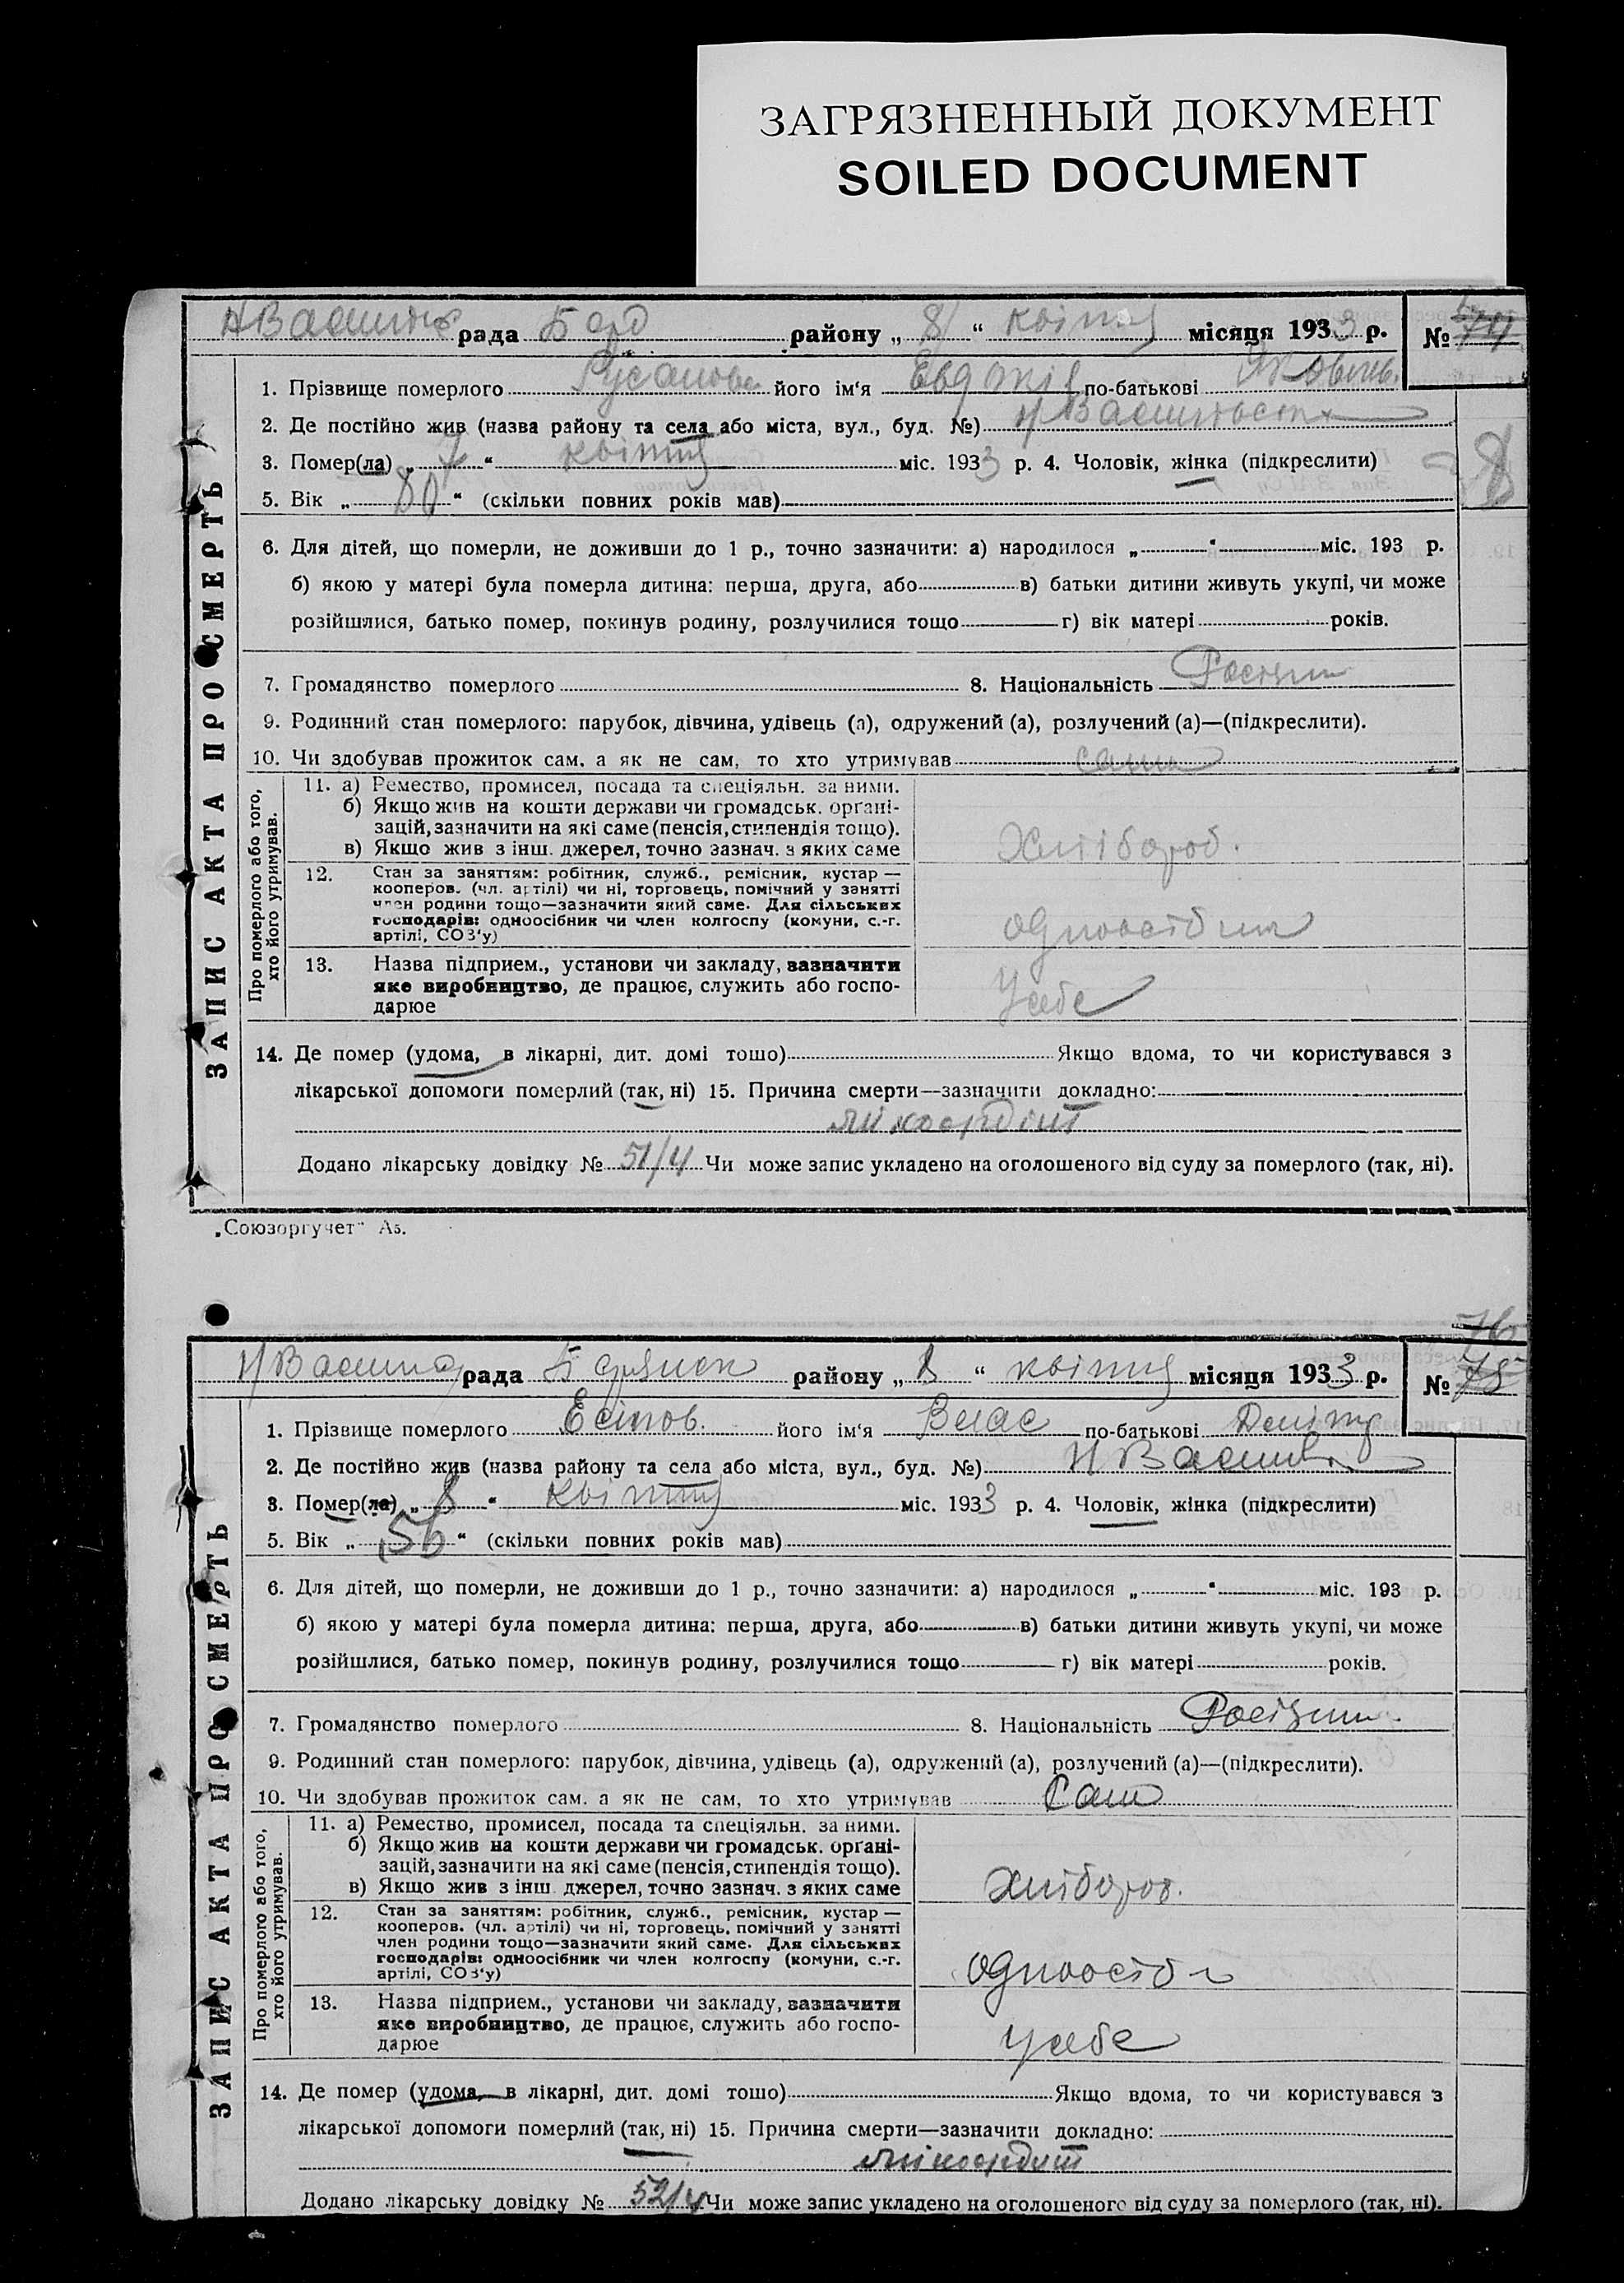 ЗАГРЯЗНЕННЫЙ ДОКУМЕНТ
SOILED DOCUMENT
рада Бард району „ 8 “ квітня місяця 1933 р. №
1. Прізвище померлого Русанова його ім‘я Евдокія по-батькові
2. Де постійно жив (назва району та села або міста, вул., буд. №)
3. Помер(ла) „ 7 “ квітня міс. 1933 р. 4. Чоловік, жінка (підкреслити)
5. Вік „ 80 “ (скільки повних років мав)
6. Для дітей, що померли, не доживши до 1 р., точно зазначити: а) народилося „ “ міс. 193 р.
б) якою у матері була померла дитина: перша, друга, або в) батьки дитини живуть укупі, чи може
розійшлися, батько помер, покинув родину, розлучилися тощо г) вік матері років.
7. Громадянство померлого 8. Національність
9. Родинний стан померлого: парубок, дівчина, удівець (а), одружений (а), розлучений (а)—(підкреслити).
10. Чи здобував прожиток сам. а як не сам, то хто утримував сама
ЗАПИС АКТА ПРО СМЕРТЬ
Про померлого або того,
хто його утримував.
11. а) Ремество, промисел, посада та спеціяльн. за ними.
б) Якщо жив на кошти держави чи громадськ. орґані-
зацій, зазначити на які саме (пенсія, стипендія тощо).
в) Якщо жив з інш. джерел, точно зазнач. з яких саме
Хлібороб.
12. Стан за заняттям: робітник, служб., ремісник, кустар —
кооперов. (чл. артілі) чи ні, торговець, помічний у занятті
член родини тощо—зазначити який саме. Для сільських
господарів: одноосібник чи член колгоспу (комуни, с.-г.
артілі, СОЗ‘у)
одноосібник
13. Назва підприєм., установи чи закладу, зазначити
яке виробництво, де працює, служить або госпо-
дарює
У себе
14. Де помер (удома, в лікарні, дит. домі тошо) Якщо вдома, то чи користувався з
лікарської допомоги померлий (так, ні) 15. Причина смерти—зазначити докладно:
міокардит
Додано лікарську довідку № 51/4 Чи може запис укладено на оголошеного від суду за померлого (так, ні).
„Союзоргучет“ Аз.
76
рада Бердянск району „ 8 “ квітня місяця 1933 р. № 75
1. Прізвище померлого Есіпов. його ім‘я Влас по-батькові Дмітр
2. Де постійно жив (назва району та села або міста, вул., буд. №)
3. Помер(ла) „ 8 “ квітня міс. 1933 р. 4. Чоловік, жінка (підкреслити)
5. Вік „ 56 “ (скільки повних років мав)
6. Для дітей, що померли, не доживши до 1 р., точно зазначити: а) народилося „ “ міс. 193 р.
б) якою у матері була померла дитина: перша, друга, або в) батьки дитини живуть укупі, чи може
розійшлися, батько помер, покинув родину, розлучилися тощо г) вік матері років.
7. Громадянство померлого 8. Національність
9. Родинний стан померлого: парубок, дівчина, удівець (а), одружений (а), розлучений (а)—(підкреслити).
10. Чи здобував прожиток сам. а як не сам, то хто утримував Сам
ЗАПИС АКТА ПРО СМЕРТЬ
Про померлого або того,
хто його утримував.
11. а) Ремество, промисел, посада та спеціяльн. за ними.
б) Якщо жив на кошти держави чи громадськ. орґані-
зацій, зазначити на які саме (пенсія, стипендія тощо).
в) Якщо жив з інш. джерел, точно зазнач. з яких саме
Хлібороб.
12. Стан за заняттям: робітник, служб., ремісник, кустар —
кооперов. (чл. артілі) чи ні, торговець, помічний у занятті
член родини тощо—зазначити який саме. Для сільських
господарів: одноосібник чи член колгоспу (комуни, с.-г.
артілі, СОЗ‘у)
одноосіб
13. Назва підприєм., установи чи закладу, зазначити
яке виробництво, де працює, служить або госпо-
дарює
у себе
14. Де помер (удома, в лікарні, дит. домі тошо) Якщо вдома, то чи користувався з
лікарської допомоги померлий (так, ні) 15. Причина смерти—зазначити докладно:
міокардит
Додано лікарську довідку № 52/4 Чи може запис укладено на оголошеного від суду за померлого (так, ні).